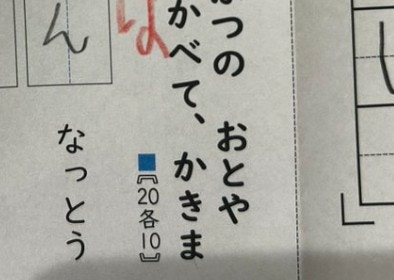 つの　おとや
かべて、かきま
■〖20各10〗
ん
なっとう